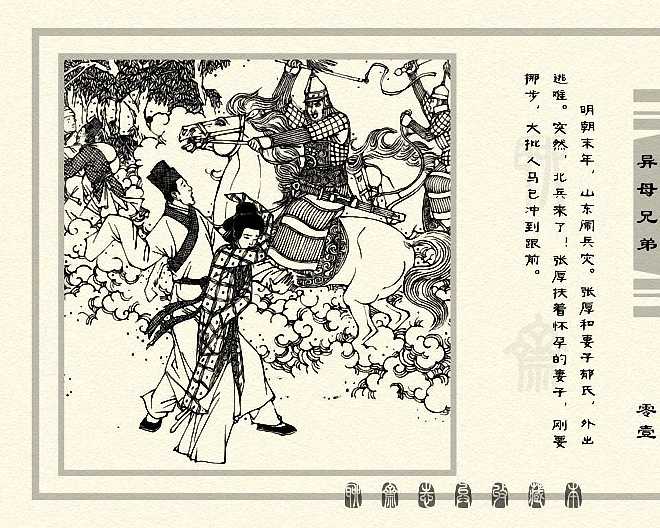 异母兄弟
零壹
明朝末年，山东闹兵灾。张厚和妻子郁氏，外出
逃难。突然，北兵来了！张厚扶着怀孕的妻子，刚要
挪步，大批人马已冲到跟前。